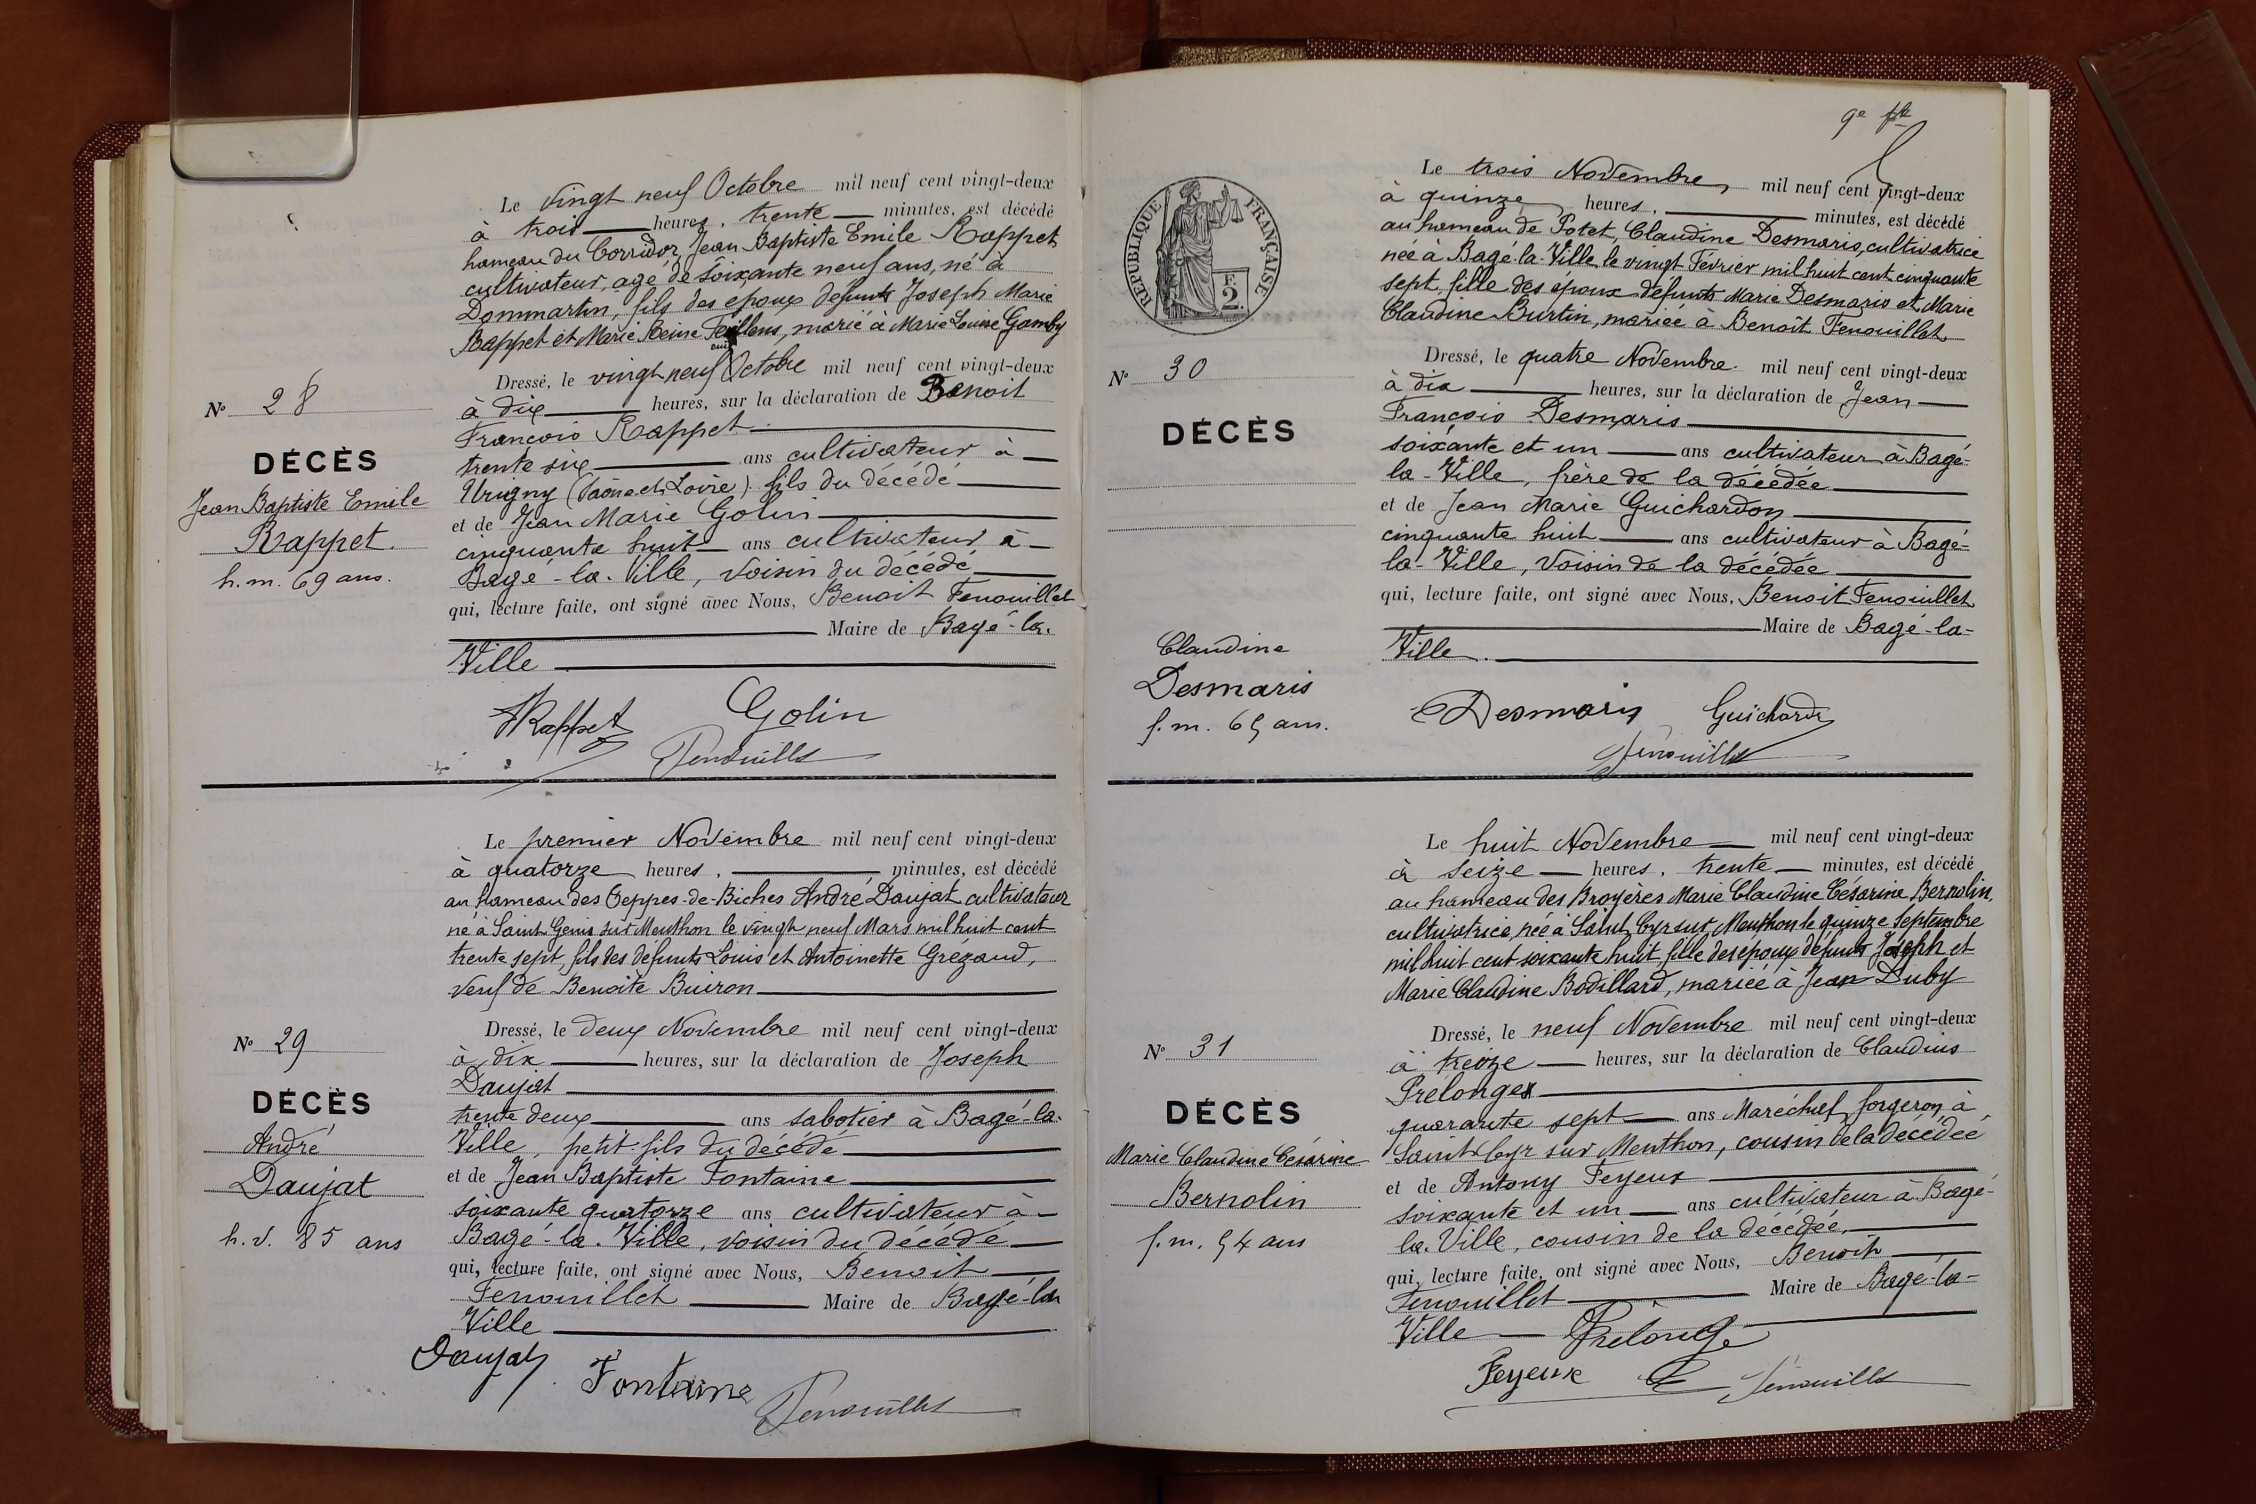 Le vingt neuf Octobre mil neuf cent vingt-deux
à trois heures, trente minutes, est décédé
hameau du Corridor Jean Baptiste Emile Rappet
cultivateur, agé de soixante neuf ans, né à
Dommartin, fils des epoux defunts Joseph Marie
Rappet et Marie Reine Feuillens, marié à Marie Louise Gamby
Dressé, le vingt neuf Octobre mil neuf cent vingt-deux
à dix heures, sur la déclaration de Benoit
François Rappet
trente six ans cultivateur à
Urigny (Saône et Loire) fils du décédé
et de Jean Marie Golin
cinquante huit ans cultivateur à
Bagé-la-Ville, voisin du décédé
qui, lecture faite, ont signé avec Nous, Benoit Fenouillet
Maire de Bagé-la-
Ville
Nº 28
DÉCÈS
Jean Baptiste Emile
Rappet.
h.m. 69 ans.
Rappet Golin
Fenouillet
Le premier Novembre mil neuf cent vingt-deux
à quatorze heures, minutes, est décédé
au hameau des Teppes-de-Biches André Daujat cultivateur
né à Saint Genis sur Menthon le vingt neuf Mars mil huit cent
trente sept, fils des défunts Louis et Antoinette Grézaud,
veuf de Benoite Buiron
Dressé, le deux Novembre mil neuf cent vingt-deux
à dix heures, sur la déclaration de Joseph
Daujat
trente deux ans sabotier à Bagé-la-
Ville, petit-fils du décédé
et de Jean Baptiste Fontaine
soixante quatorze ans cultivateur à
Bagé-la-Ville, voisin du décédé
qui, lecture faite, ont signé avec Nous, Benoit
Fenouillet Maire de Bagé-la
Ville
Nº 29
DÉCÈS
André
Daujat
h.v. 85 ans
Daujat Fontaine
Fenouillet
9e
Le trois Novembre, mil neuf cent vingt-deux
à quinze heures, minutes, est décédé
au hameau de Potet, Claudine Desmaris, cultivatrice
née à Bagé-la-Ville le vingt Février mil huit cent cinquante
sept, fille des époux défunts Marie Desmaris et Marie
Claudine Burtin, mariée à Benoît Fenouillet.
Dressé, le quatre Novembre mil neuf cent vingt-deux
à dix heures, sur la déclaration de Jean
François Desmaris
soixante et un ans cultivateur à Bagé-
la-Ville, frère de la décédée
et de Jean Marie Guichardon
cinquante huit ans cultivateur à Bagé-
la-Ville, voisin de la décédée
qui, lecture faite, ont signé avec Nous, Benoit Fenouillet
Maire de Bagé-la-
Ville.
RÉPUBLIQUE FRANÇAISE
F.
2
Nº 30
DÉCÈS
Claudine
Desmaris
f.m. 65 ans.
Desmaris Guichardon
Fenouillet
Le huit Novembre mil neuf cent vingt-deux
à seize heures, trente minutes, est décédé
au hameau des Broyères Marie Claudine Césarine Bernolin,
cultivatrice, née à Saint Cyr sur Menthon le quinze Septembre
mil huit cent soixante huit fille des époux défunts Joseph et
Marie Claudine Bodillard, mariée à Jean Duby
Dressé, le neuf Novembre mil neuf cent vingt-deux
à treize heures, sur la déclaration de Claudius
Prélonge
quarante sept ans Maréchal forgeron à
Saint Cyr sur Menthon, cousin de la décédée
et de Antony Feyeux
soixante et un ans cultivateur à Bagé-
la-Ville, cousin de la décédée,
qui, lecture faite, ont signé avec Nous, Benoit
Fenouillet Maire de Bagé-la-
Ville
Nº 31
DÉCÈS
Marie Claudine Césarine
Bernolin
f.m. 54 ans
Prélonge
Feyeux Fenouillet